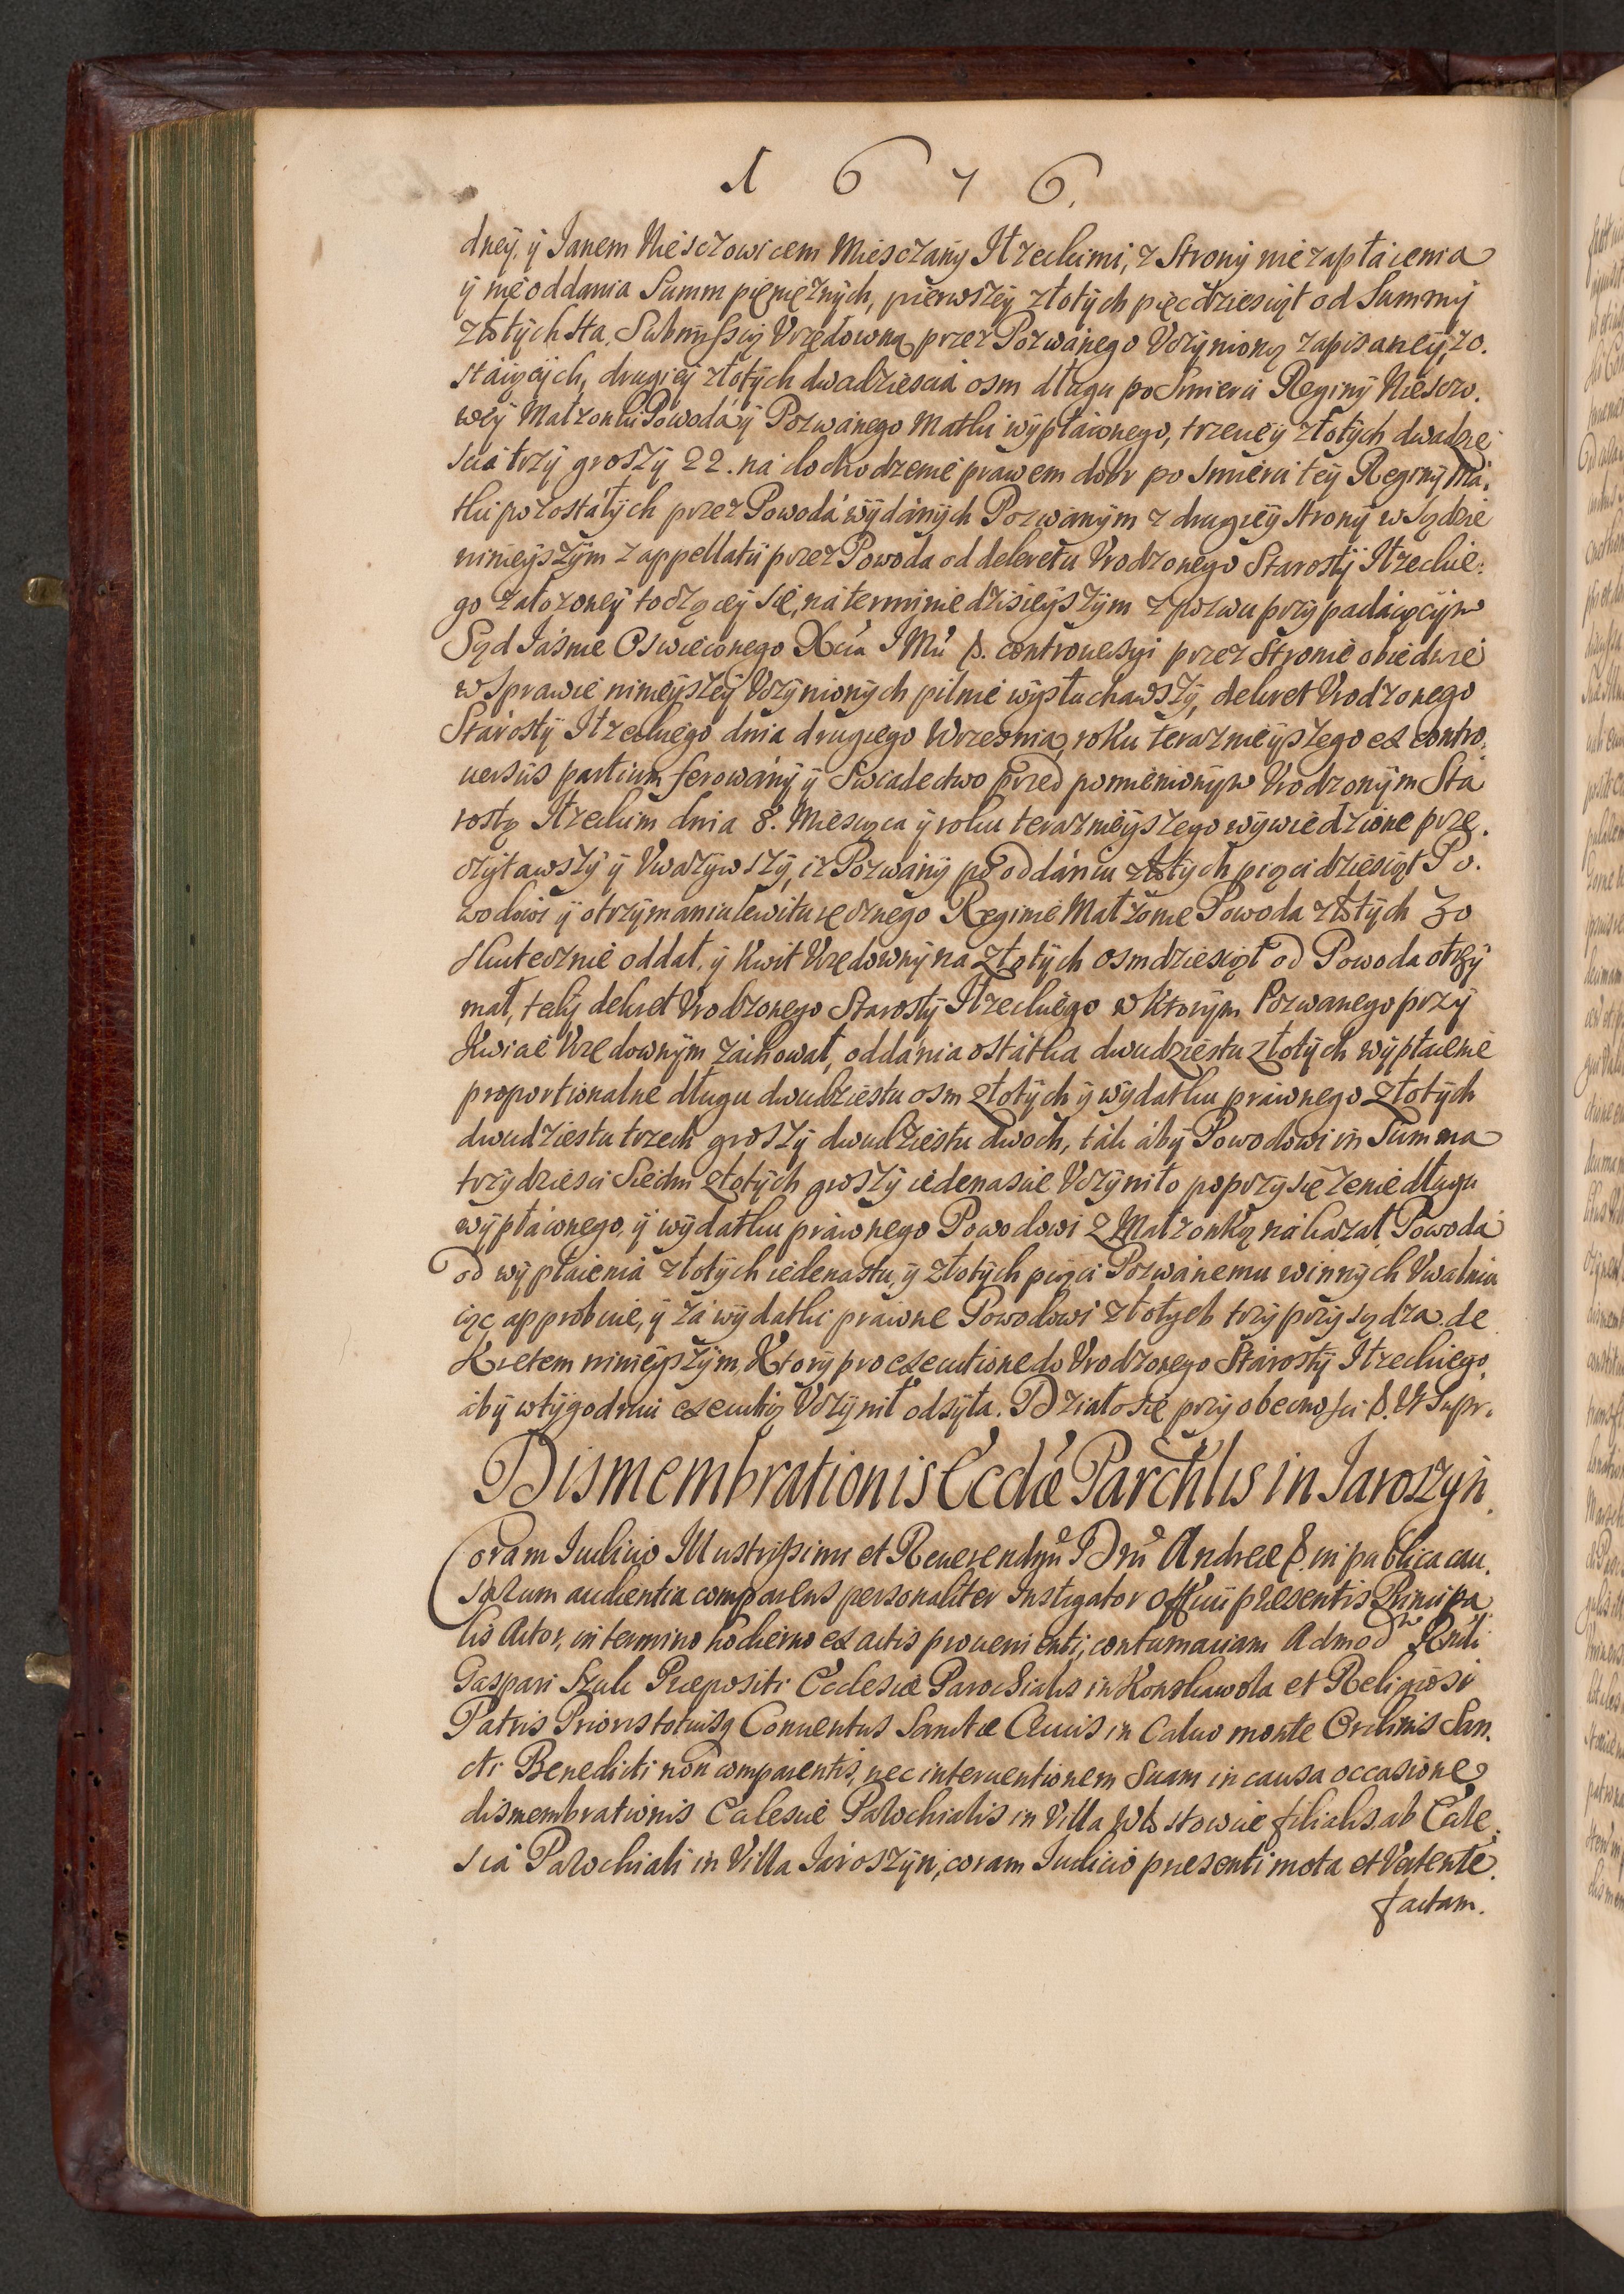 1 6 7 6.
dneÿ, ÿ Janem Nieśczowicem Miesczany Iłzeckimi, z Strony nie zapłacenia
ÿ nie oddania Summ pięnięznych, pierwszeÿ złotych pięcdziesiąt od Summy
złotych Sta. Submissią Vrzędowną przez Pozwánego Vczynioną zapisaneÿ, zo.
stáiących, drugieÿ złotych dwadzieścia osm długu po Smierci Reginy Nieśczo.
weÿ Małzonki Powodá ÿ Pozwánego Matki wypłáconego, trzecieÿ złotych dwadzie
sciá trzy groszy 22. ná dochodzenie prawem dobr po Smierci teÿ Reginy Má.
tki pozostáłych przez Powodá wydánych Pozwánym z drugieÿ strony w Sądzie
ninieyszym z appellatiÿ przez Powoda od dekretu Vrodzonego Starosty Iłzeckie.
go załozoneÿ toczącey się, ná terminie dzisieyszym z pozwu przypadáiącym
Sąd Jáśnie Oswieconego Xcia JMci P. controuersyi przez Stronie obiedwie
w Sprawie ninieyszeÿ Vczynionych pilnie wysłuchawszy, dekret Vrodzonego
Stárosty Iłzeckiego dnia drugiego Wrzesnia, roku teraznieyszego ex contro.
uersiis partium ferowány ÿ Swiadectwo przed pomienionym Vrodzonym Stá
rostą Iłzeckim dnia 8. Miesiąca ÿ roku teraznieyszego wywiedzione prze.
czytawszy ÿ Vwazywszy, iz Pozwány po oddániu złotych pięcidziesiąt Po.
wodowi ÿ otrzymaniu kwitu ręcznego Reginie Małzonie Powoda złotych 30
skutecznie oddał, ÿ Kwit Vrzędowny na złotych osmdziesiąt od Powoda otrzy
mał, tedy dekret Vrodzonego Starosty Iłzeckiego w ktorym Pozwanego przy
Kwicie Vrzędownym záchował, oddánia ostátka dwudziestu złotych wypłacenie
proportionalne długu dwudziestu osm złotych ÿ wydatku práwnego złotych
dwudziestu trzech groszy dwudziestu dwoch, ták áby Powodowi in Summa
trzydzieści Siedm złotych groszy iedenascie Vczyniło poprzysięzenie długu
wypłáconego, ÿ wydatku práwnego Powodowi z Małzonką nákazał, Powodá
od wypłácenia złotych iedenastu, ÿ złotych pięci Pozwánemu winnych Vwalnia
iąc approbuie, ÿ zá wydatki práwne Powodowi złotych trzy przysądza. de
Kretem ninieyszym, Ktory pro executione do Vrodzonego Stárosty Iłzeckiego,
áby w tygodniu executią Vczynił odsyła. Działo się przy obecnosci P. Vt Supr.
Dismembrationis Eccłæ Parchłis in Jaroszyn.
Coram Iudicio Illustrissimi et Reuerendmi Dni Andreæ P. in publica cau.
sarum audientia comparens personaliter Instigator Officii præsentis Principa
lis Actor, in termino hodierno ex actis prouenienti, contumaciam Admodm Rndi
Gaspari Szulc Præpositi Ecclesiæ Parochialis in Konskawola et Religiosi
Patris Prioris totiusq Conuentus Sanctæ Crucis in Caluo monte Ordinis San.
cti Benedicti non comparentis, nec interuentionem Suam in causa occasione
dismembrationis Ecclesiæ Parochialis in Villa Włostowice filialis, ab Eccle.
sia Parochiali in Villa Jároszyn, coram Iudicio præsenti mota et Vertente.
factam.